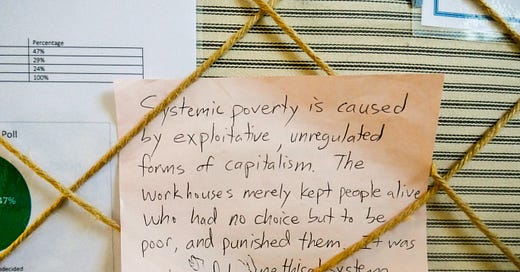 Percentage
47%
29%
24%
100%
Poll
47%
ndecided
Systemic poverty is caused
by exploitative, unregulated
forms of capitalism. The
workhouses merely kept people alive
who had no choice but to be
poor, and punished them. It was